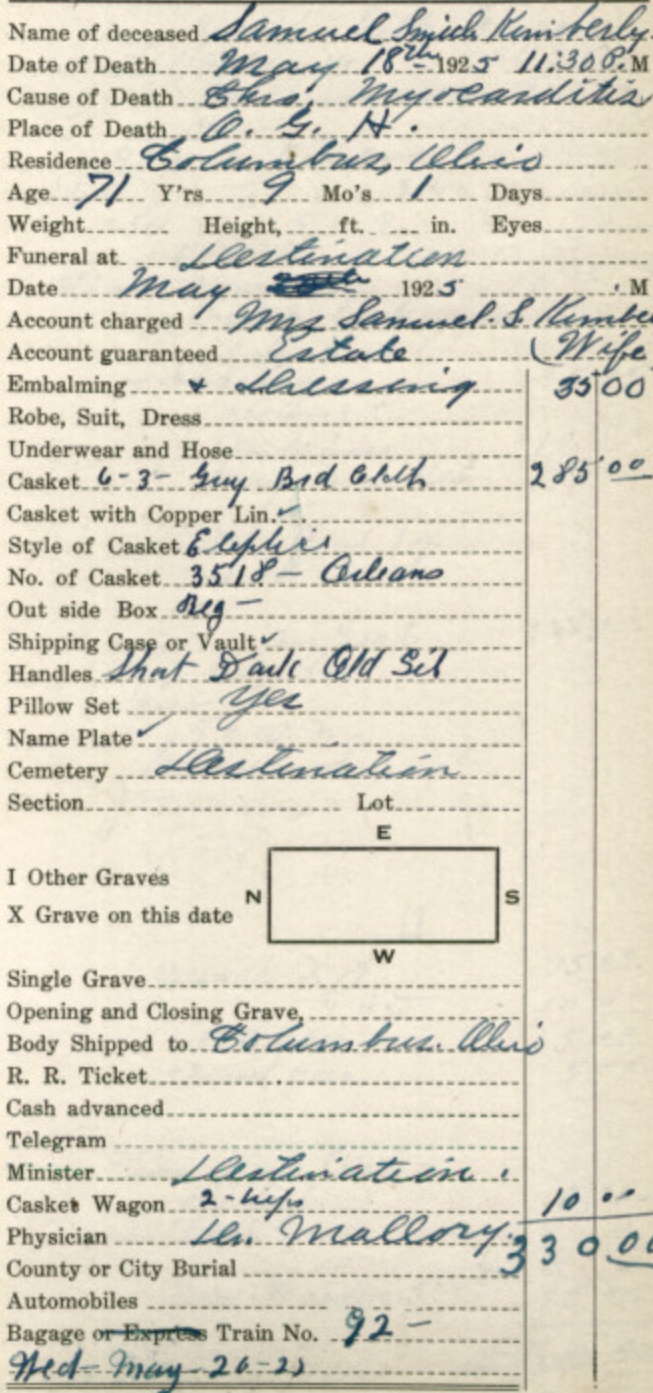 Name of deceased Samuel Smith Kimberly
Date of Death May 18th 1925 11:30 P. M
Cause of Death Chro. Myocarditis
Place of Death O. G. H.
Residence Columbus, Ohio
Age 71 Y'rs 9 Mo's 1 Days
Weight Height, ft. in. Eyes
Funeral at Destination
Date May 1925 . M
Account charged Mrs Samuel. S. Kimbe
Account guaranteed Estate (Wife
Embalming & Dressing 35 00
Robe, Suit, Dress
Underwear and Hose
Casket 6-3- Grey Brd Cloth 285 00
Casket with Copper Lin.
Style of Casket
No. of Casket 3518 - Orleans
Out side Box Reg -
Shipping Case or Vault
Handles Short Dark Old Sil
Pillow Set Yes
Name Plate
Cemetery Destination
Section Lot
E
I Other Graves
N S
X Grave on this date
W
Single Grave
Opening and Closing Grave,
Body Shipped to Columbus. Ohio
R. R. Ticket
Cash advanced
Telegram
Minister Destination.
Casket Wagon 2- 10 00
Physician Dr. Mallory. 330 00
County or City Burial
Automobiles
Bagage or Express Train No. 92 -
Wed - May - 20 - 25